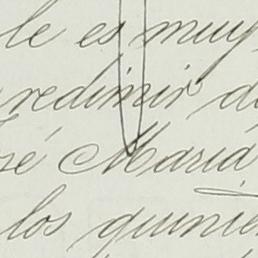 le es muy
redimir de
sé María
los quinien